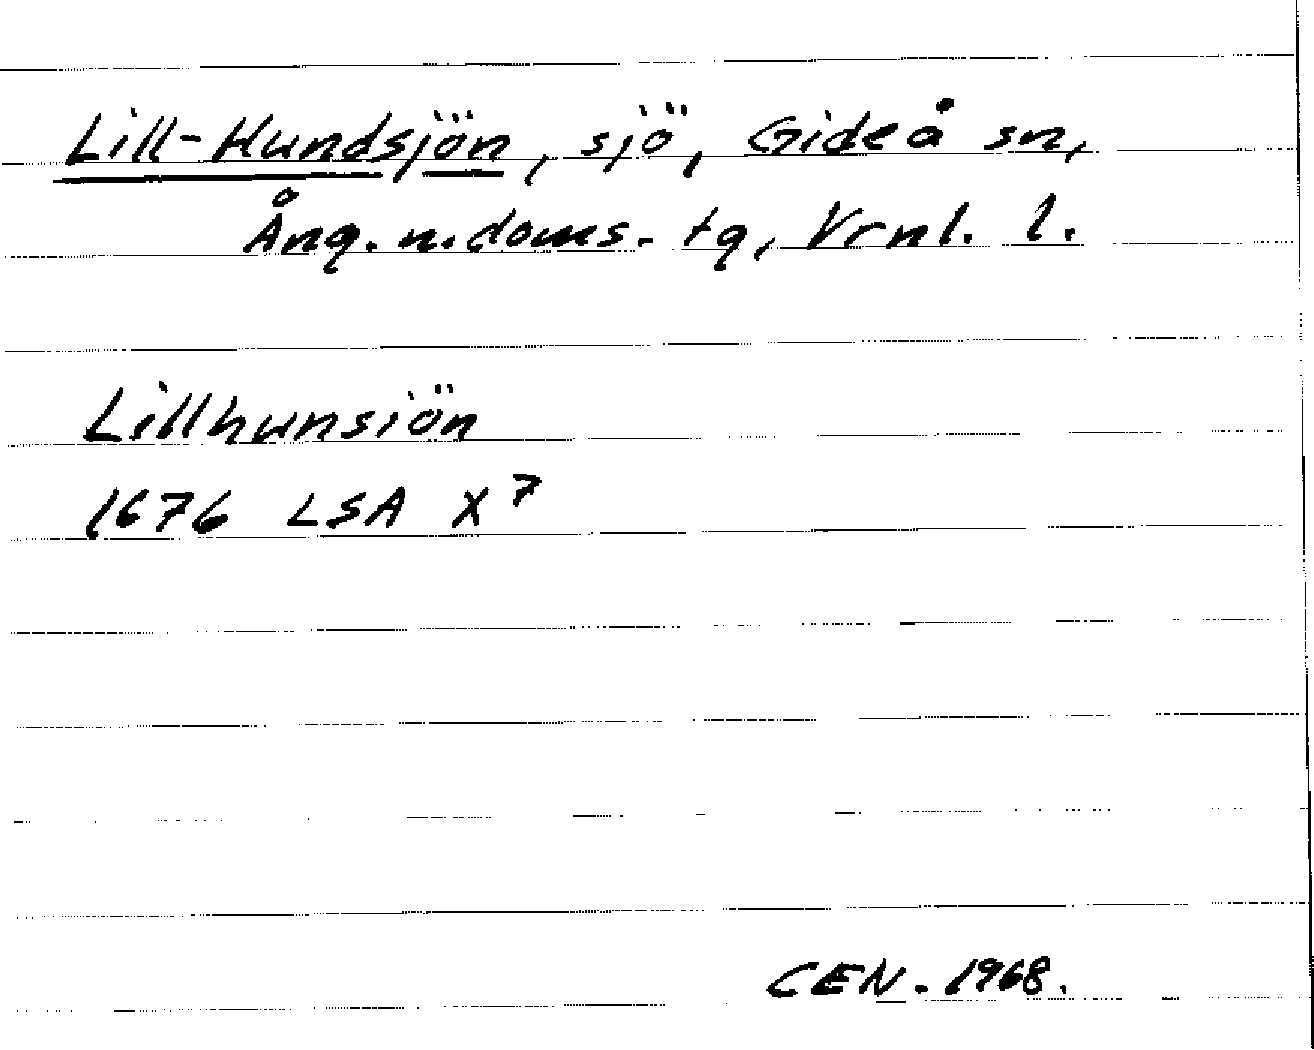 Lill-Hundsjön, sjö, Gideå sn,
Ång. n. doms. tg, Vrnl. l.
Lillhunsiön
1676 LSA X 7
CEN. 1968.